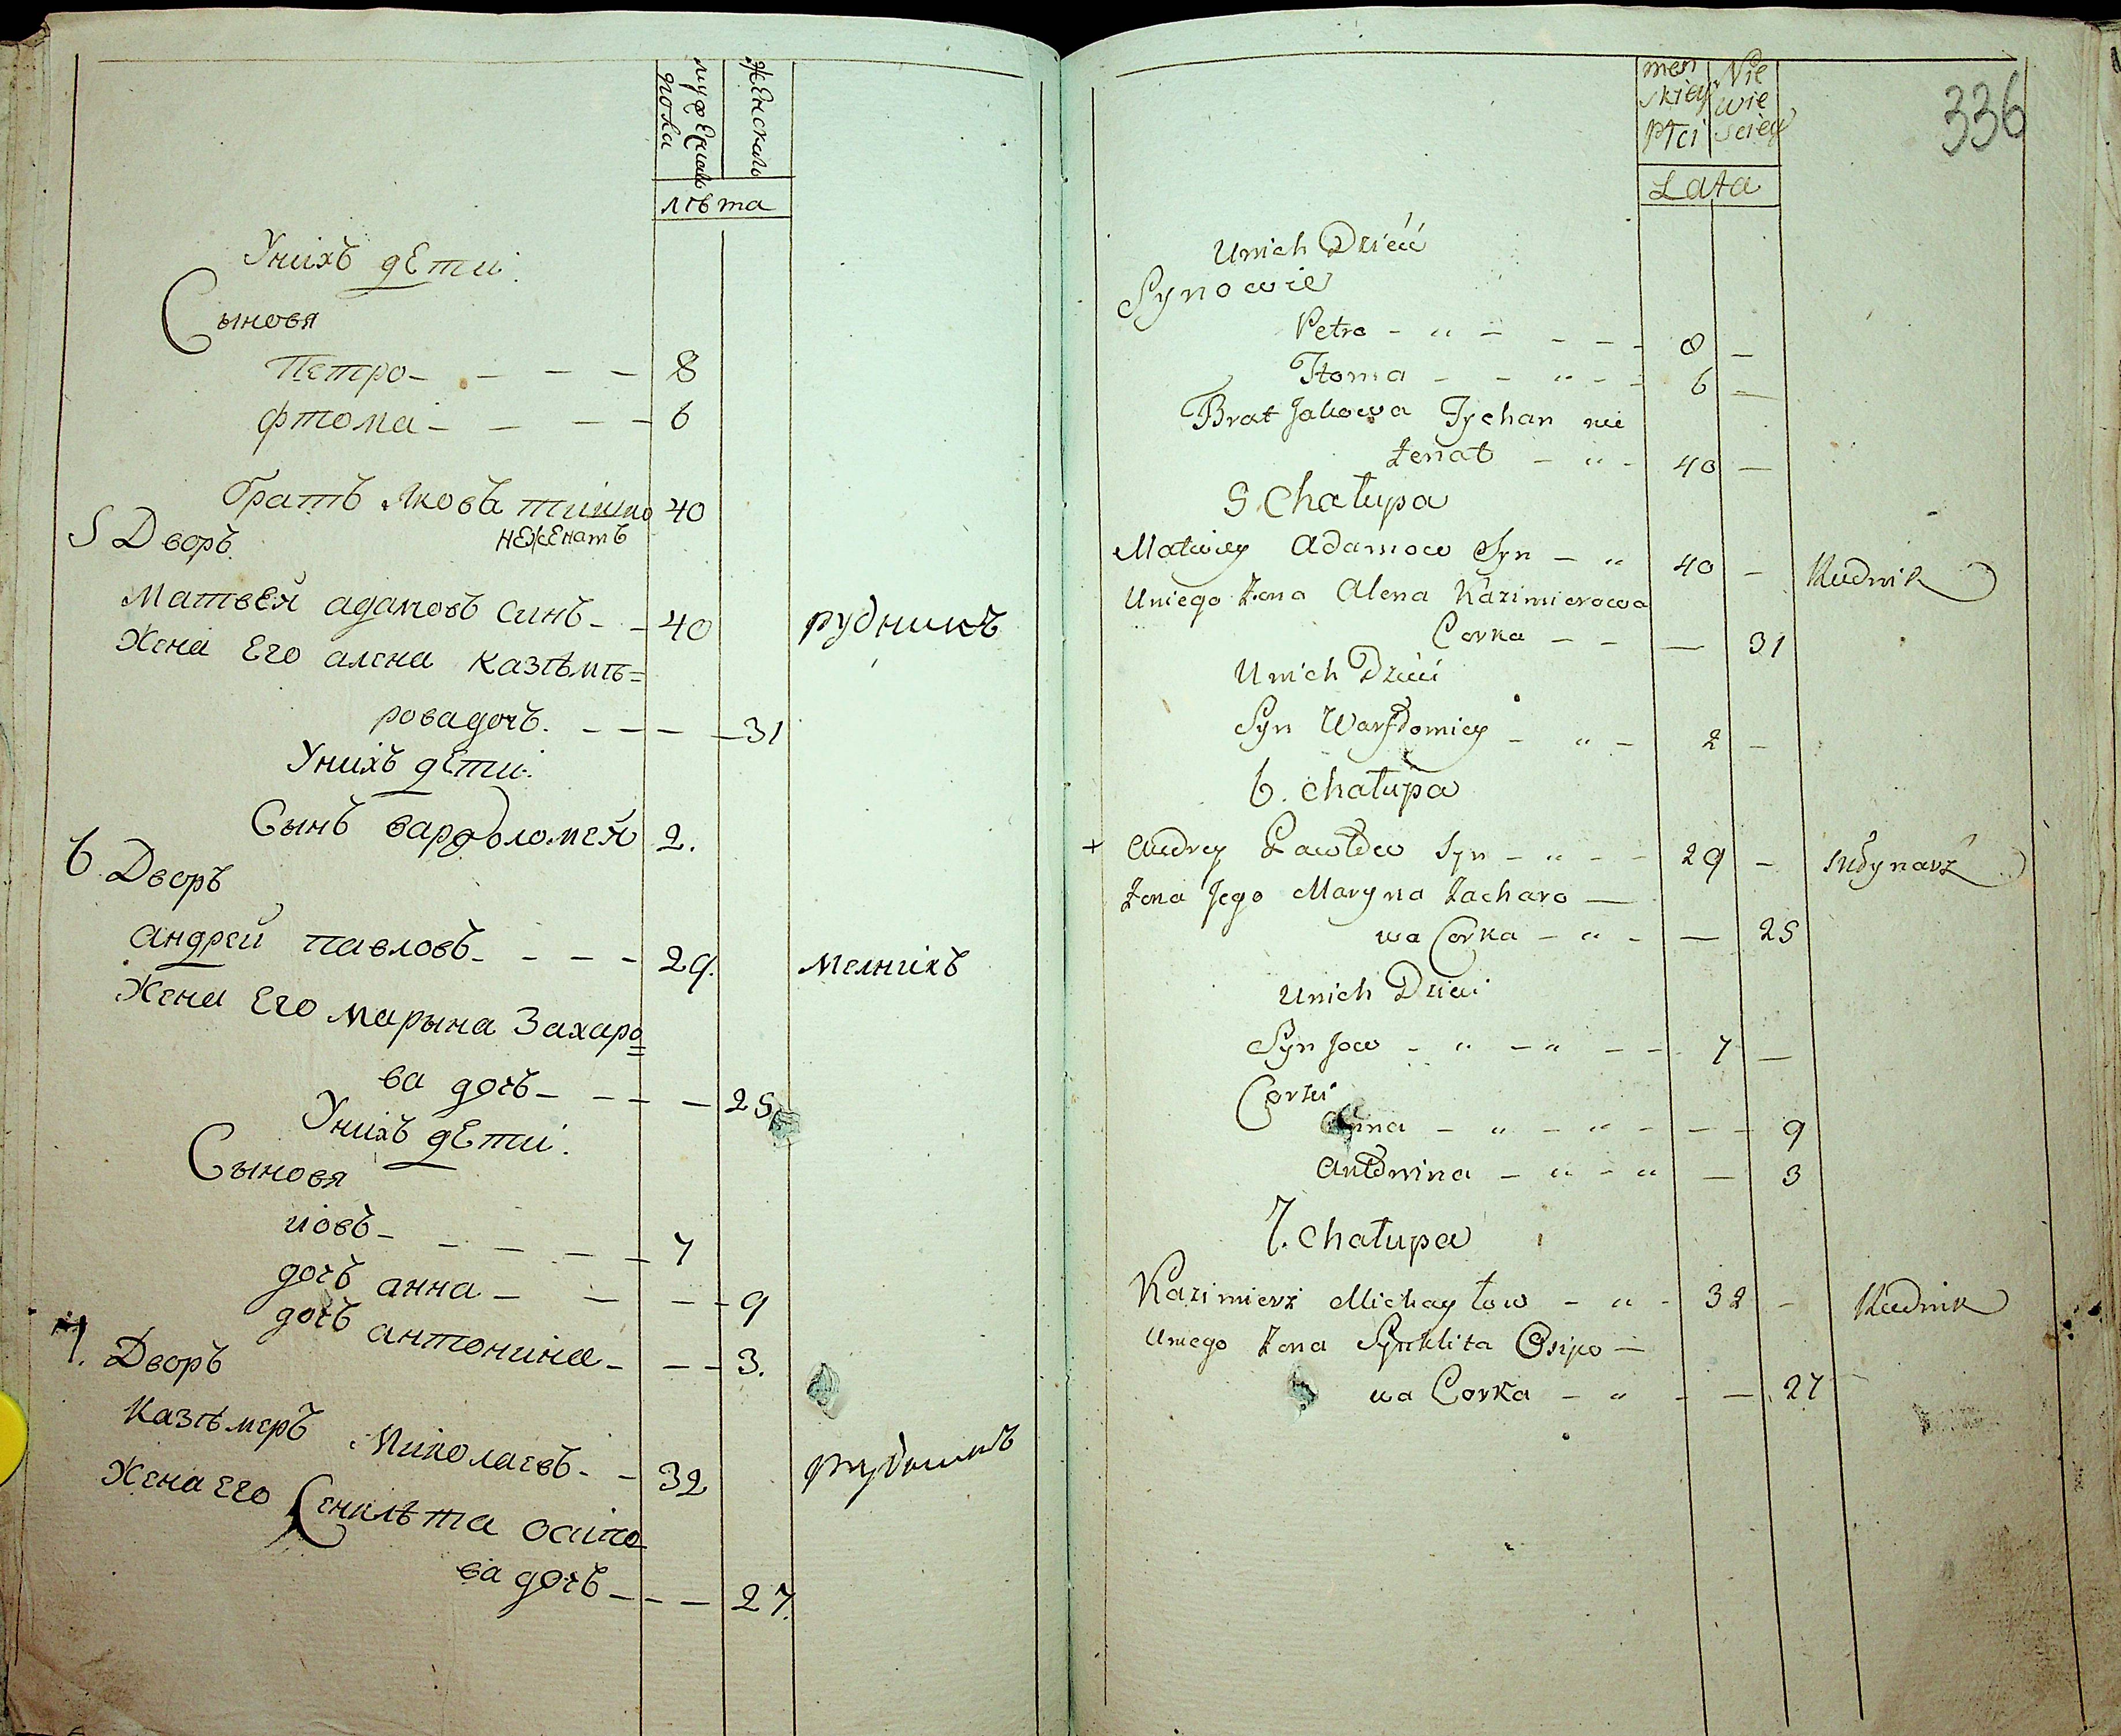 мужеска
пола
женскаго
лѣта
Унихъ дети
Сыновя
Петро 8
фтома 6
братъ яковa тишко 40
неженатъ
5 Дворъ
Матвей адамовъ синъ 40 рудникъ
Жена Его алена казѣмѣ=
рова дочъ 31
Унихъ дети
Сынъ вардоломей 2.
6 Дворъ
андрей павловъ 29. мелникъ
Жена Его марына Захаро=
ва дочъ 25
Унихъ дети.
Сыновя
иовъ 7
дочъ анна 9
дочъ антонина 3.
7. Дворъ
Казѣмеръ Миколаевъ 32 рудникъ
Жена Его Сенклѣта осипо
ва дочъ 27.
336
men Nie
skiey wie
Płci sciey
Lata
Unich Dzieci
Synowie
Petro 8
Htoma 6
Brat Jakowa Tychan nie
żenat 40
5 Chałupa
Matwiey Adamow Syn 40 Rudnik
Uniego Żona Alena Kazimierowa
Corka 31
Unich Dzieci
Syn Warfłomiey 2
6. Chałupa
+ Andrey Pawłow Syn 29 Młynarz
Żona Jego Maryna Zacharo
wa Corka 25
Unich Dzieci
Syn Jow 7
Corki
Anna 9
Antonina 3
7. Chałupa
Kazimierz Michayłow 32 Rudnik
Uniego Żona Synklita Osipo
wa Corka 27